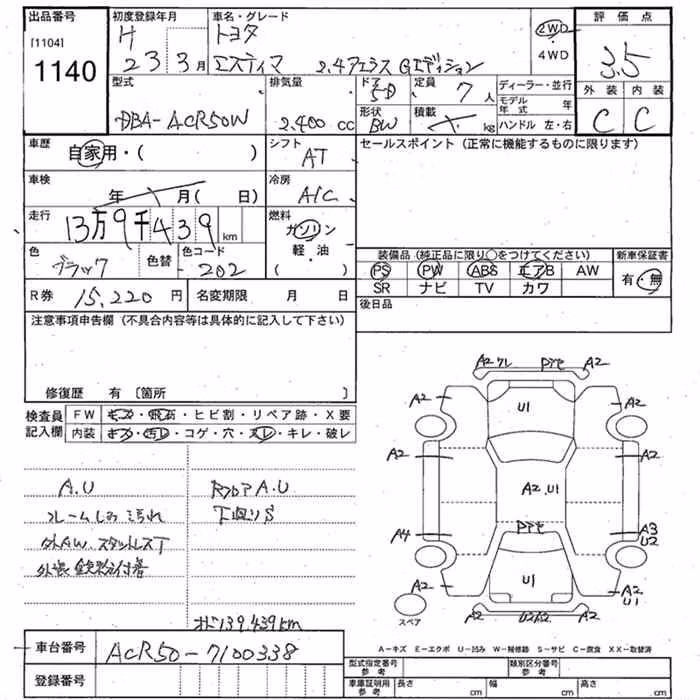 出品番号
[1104]
1140
初度登録年月
H
23 3月
車名・グレード
トヨタ
エスティマ 2.4アエラス Gエディション
2WD
・
4WD
評価点
3.5
外装 内装
C C
型式
DBA-ACR50W
排気量
2.400 cc
ドア
5D
形状
BW
定員
7人
積載
kg
ディーラー・並行
モデル年式 年
ハンドル 左・右
車歴
自家用・( )
シフト
AT
セールスポイント(正常に機能するものに限ります)
車検
年 月( 日)
冷房
A/C
走行
13万9千439 km
燃料
ガソリン
軽・油
( )
色
ブラック
色替
色コード
202
装備品(純正品に限り○をつけてください)
新車保証書
PS PW ABS エアB AW
SR ナビ TV カワ
有・無
R券 15,220円
名変期限 月 日
後日品
注意事項申告欄(不具合内容等は具体的に記入して下さい)
修復歴 有〔箇所 〕
検査員
記入欄
FW キズ・飛石・ヒビ割・リペア跡・X要
内装 キズ・汚レ・コゲ・穴・スレ・キレ・破レ
A.U
フレームしみ汚れ
外AW.スタットレスT
外装鉄粉付着
RフロアA.U
下廻りS
オド139.439km
A2 ワレ A2
A2 U1 A2
A2 A2
A2.U1
A4 A3
U2
U1
A2 U2A2 A2
U1
スペア
A-キズ E-エクボ U-凹み W-補修跡 S-サビ C-腐食 XX-取替済
車台番号
ACR50-7100338
登録番号
型式指定番号
参考
類別区分番号
参考
車庫証明用
参考
長さ cm 幅 cm 高さ cm